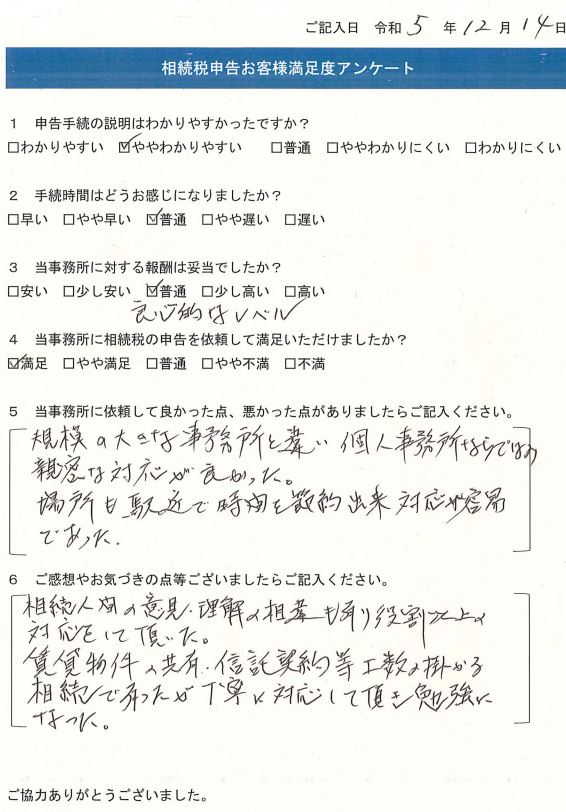 ご記入日 令和 5 年 12 月 14 日
相続税申告お客様満足度アンケート
1 申告手続の説明はわかりやすかったですか?
□わかりやすい ☑ややわかりやすい □普通 □ややわかりにくい □わかりにくい
2 手続時間はどうお感じになりましたか?
□早い □やや早い ☑普通 □やや遅い □遅い
3 当事務所に対する報酬は妥当でしたか?
□安い □少し安い ☑普通 □少し高い □高い
良心的なレベル
4 当事務所に相続税の申告を依頼して満足いただけましたか?
☑満足 □やや満足 □普通 □やや不満 □不満
5 当事務所に依頼して良かった点、悪かった点がありましたらご記入ください。
規模の大きな事務所と違い 個人事務所ならではの
親密な対応が良かった。
場所も駅近で時間を節約出来 対応が容易
であった.
6 ご感想やお気づきの点等ございましたらご記入ください。
相続人間の意見・理解の相違も有り役割以上の
対応をして頂いた。
賃貸物件の共有・信託契約等工数の掛かる
相続で有ったが丁寧に対応して頂き勉強に
なった。
ご協力ありがとうございました。